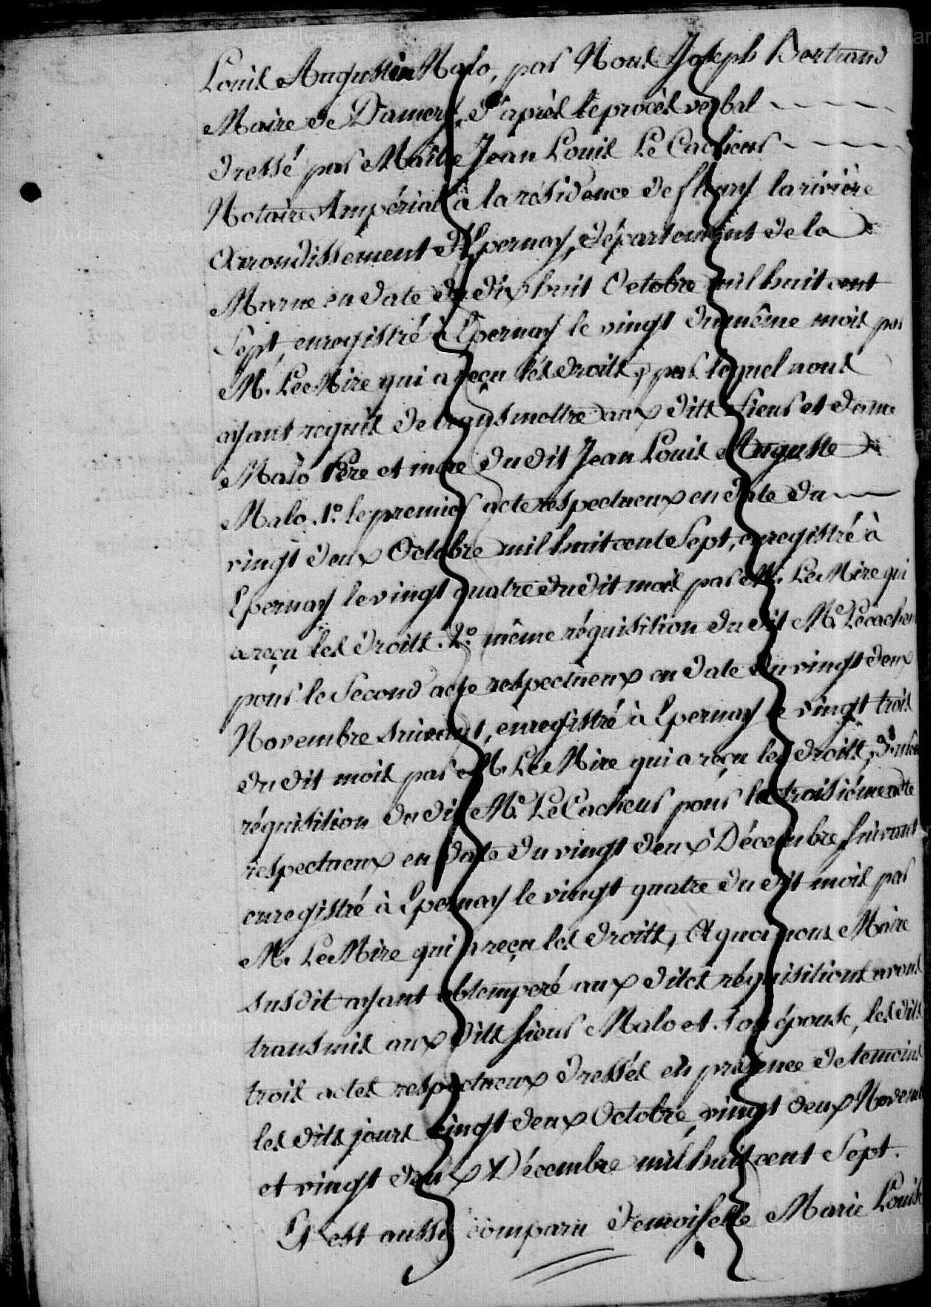 Louis Augustin Malo, par Nous Joseph Bertrand
Maire de Damery, d'après le procès verbal
dressé par Maître Jean Louis Le Cacheur
Notaire Impérial à la résidence de fleury la rivière
Arrondissement d'Epernay, département de la
Marne en date du dix huit Octobre mil huit cent
Sept enregistré à Epernay le vingt du même mois par
M. Le Mire qui a reçu les droits, par lequel nous
ayant requis de transmettre aux dits Sieur et dame
Malo Père et mere du dit Jean Louis Auguste
Malo. 1º. le premier acte respectueux en date du
vingt deux Octobre mil huit cent Sept, enregistré à
Epernay le vingt quatre du dit mois par M. Le Mire qui
a reçu les droits. 2º. même réquisition du dit Me. Lecacheur
pour le Second acte respectueux en date du vingt deux
Novembre suivant, enregistré à Epernay le vingt trois
du dit mois par M. Le Mire qui a reçu les droits,
réquisition du dit Me. Le Cacheur pour le troisième acte
respectueux en date du vingt deux Décembre suivant
enregistré à Epernay le vingt quatre du dit mois par
M. Le Mire qui a reçu les droits, A quoi nous Maire
susdit ayant obtempéré aux dites réquisitions avons
transmis aux dits Sieur Malo et son épouse, les dits
trois actes respectueux dressés en présence de temoins
les dits jours vingt deux Octobre, vingt deux Novembre
et vingt deux Décembre mil huit cent Sept.
Et est aussi comparu demoiselle Marie Louise